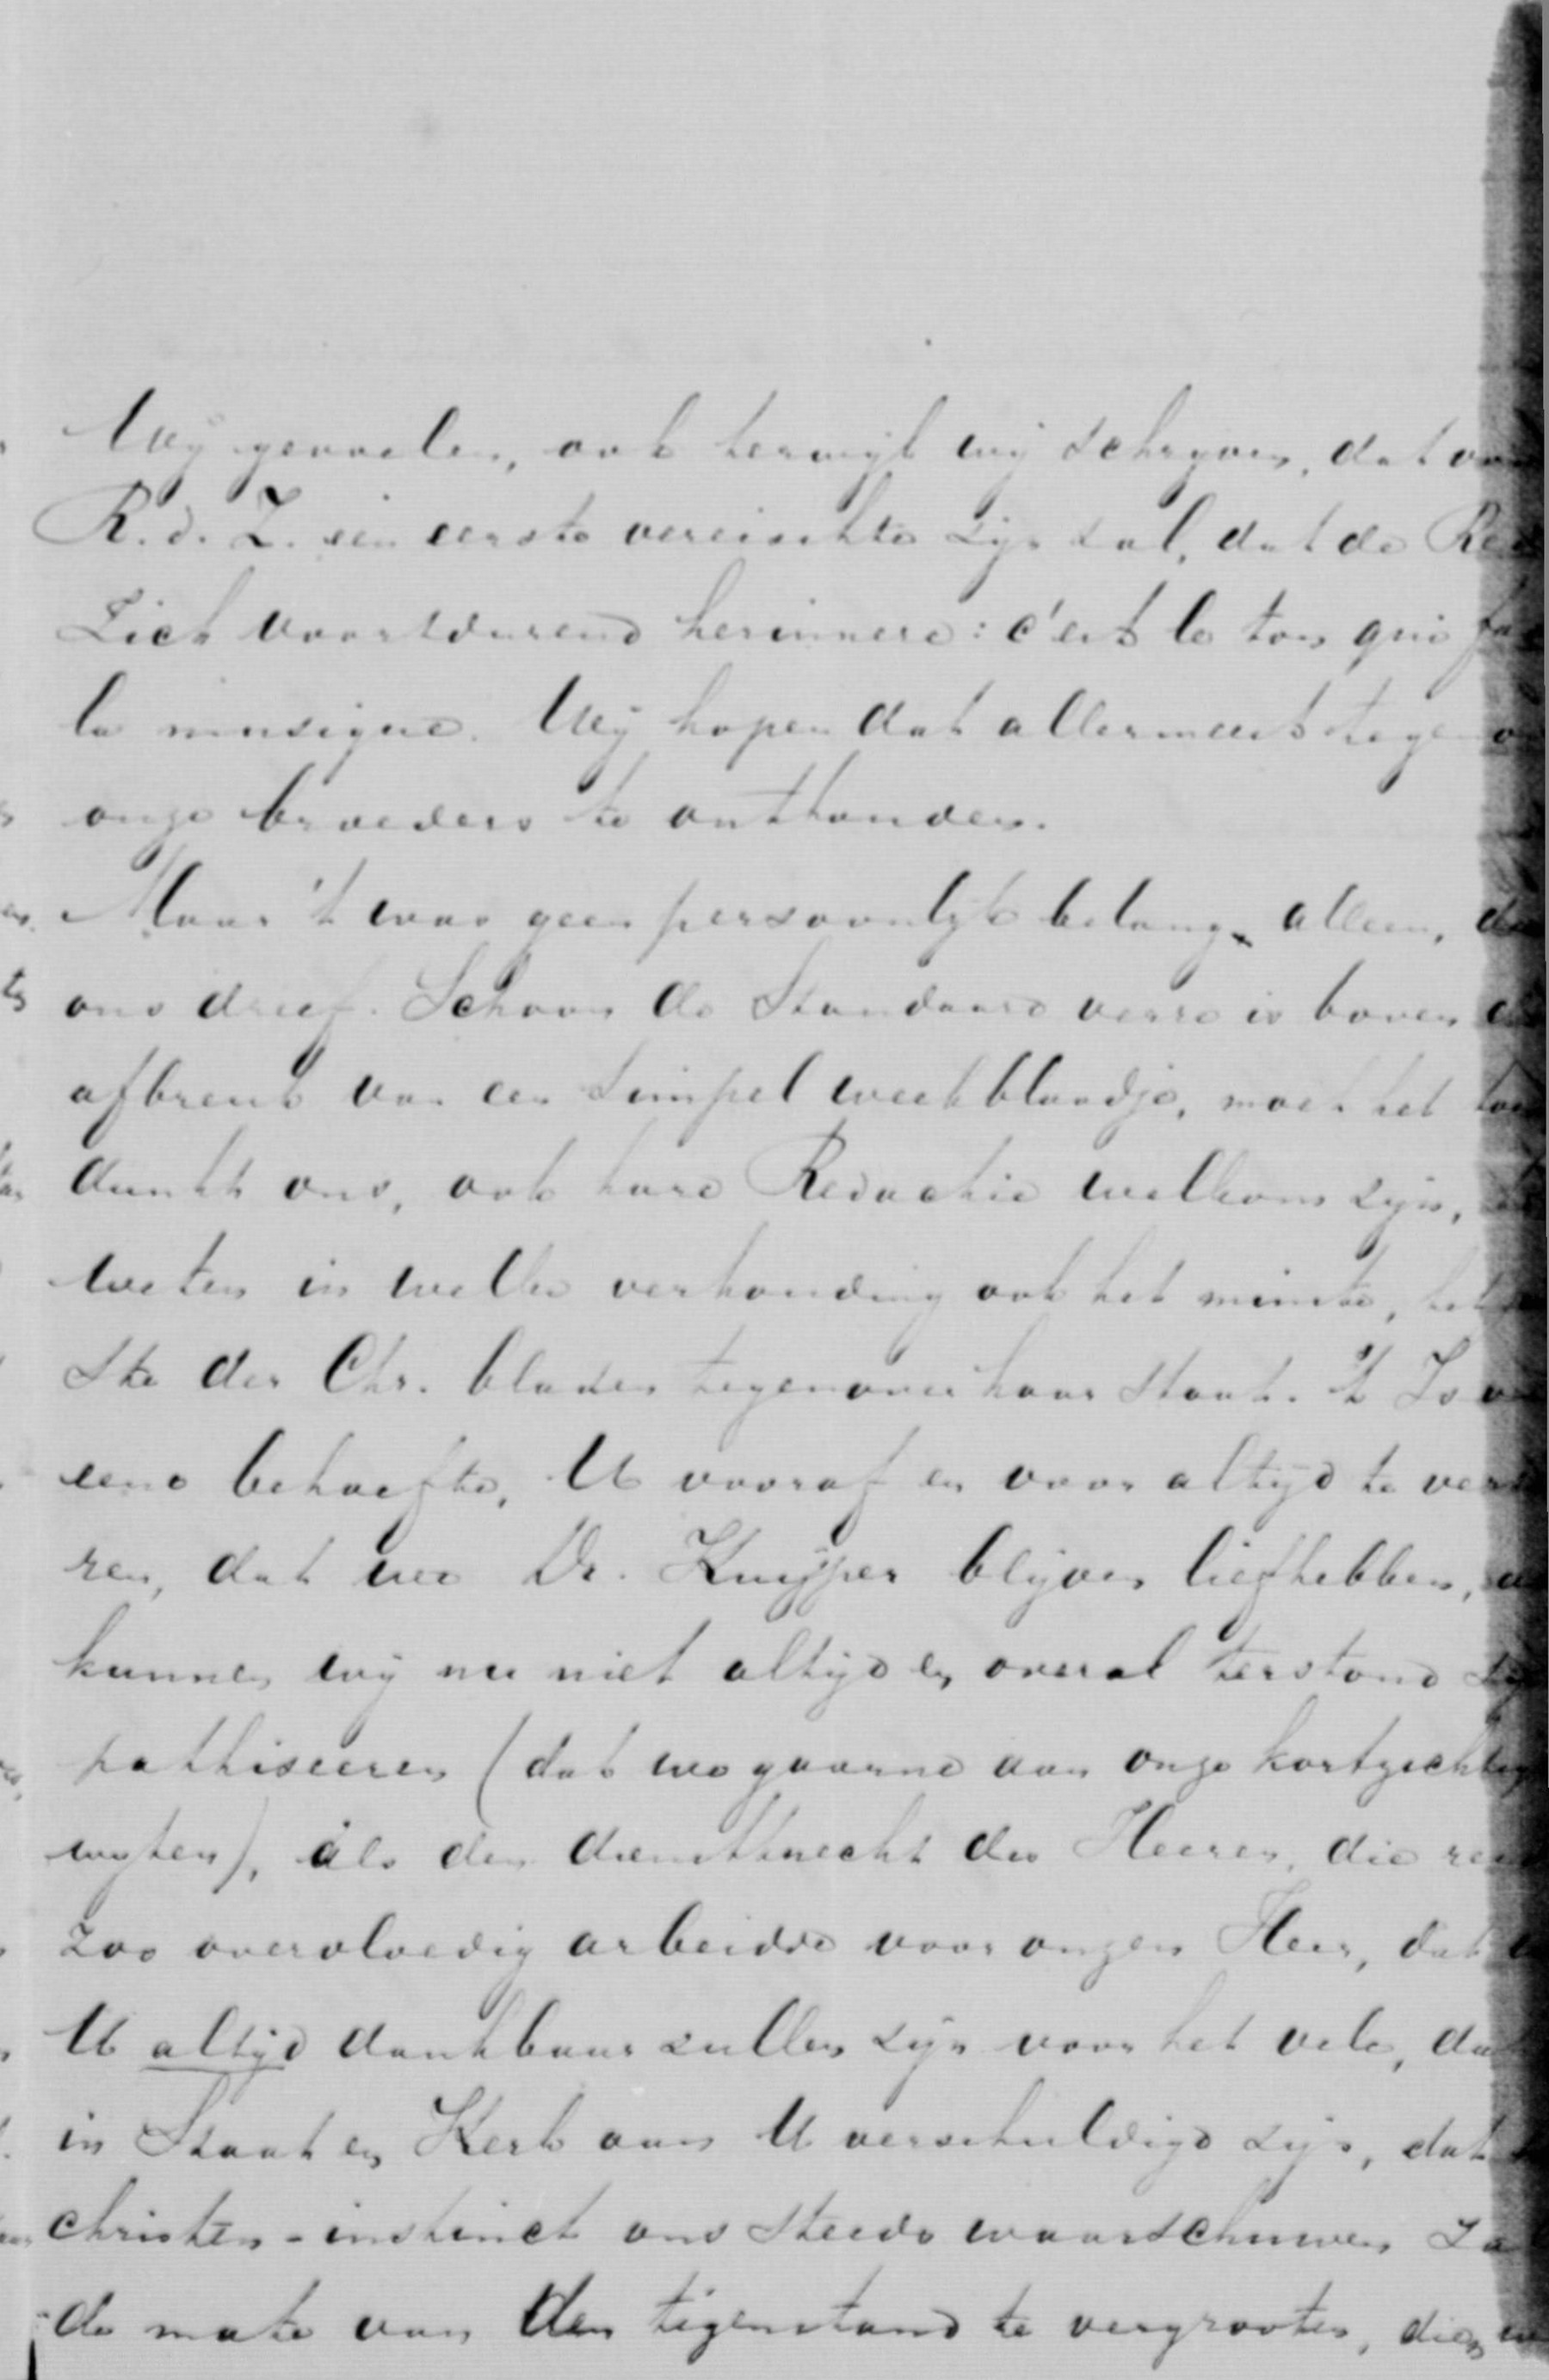 Wij gevoelen, ook terwijl wij schrijven, dat
R. d. Z. een eerste vereischte zijn zal, dat de Re
Zich voortdurend herinnere: c'est le ton qui fa
la musique. Wij hopen dat allermeest tegen
onze broeders te onthouden.
Maar 't was geen persoonlijk belang alleen,
ons dreef. Schoon de Standaard verre is boven
afbreuk van een simpel weekblaadje, moet het
dunkt ons, ook hare Redactie welkom zijn,
weten in welke verhouding ook het minste, het
ste der Chr. bladen tegenover haar staat. 't Is
eene behoefte, U vooraf en voor altijd te ver
ren, dat we Dr. Kuijper blijven liefhebben,
kunnen wij nu niet altijd en overal terstond
pathiseeren (dat we gaarne aan onze kortzichtig
wijten), als den dienstknecht des Heeren, die
zoo overvloedig arbeidde voor onzen Heer, dat
U altijd dankbaar zullen zijn voor het vele, da
in Staat en Kerk aan U verschuldigd zijn, dat
christen-instinct ons steeds waarschuwen za
de mate van den tegenstand te vergrooten, dien